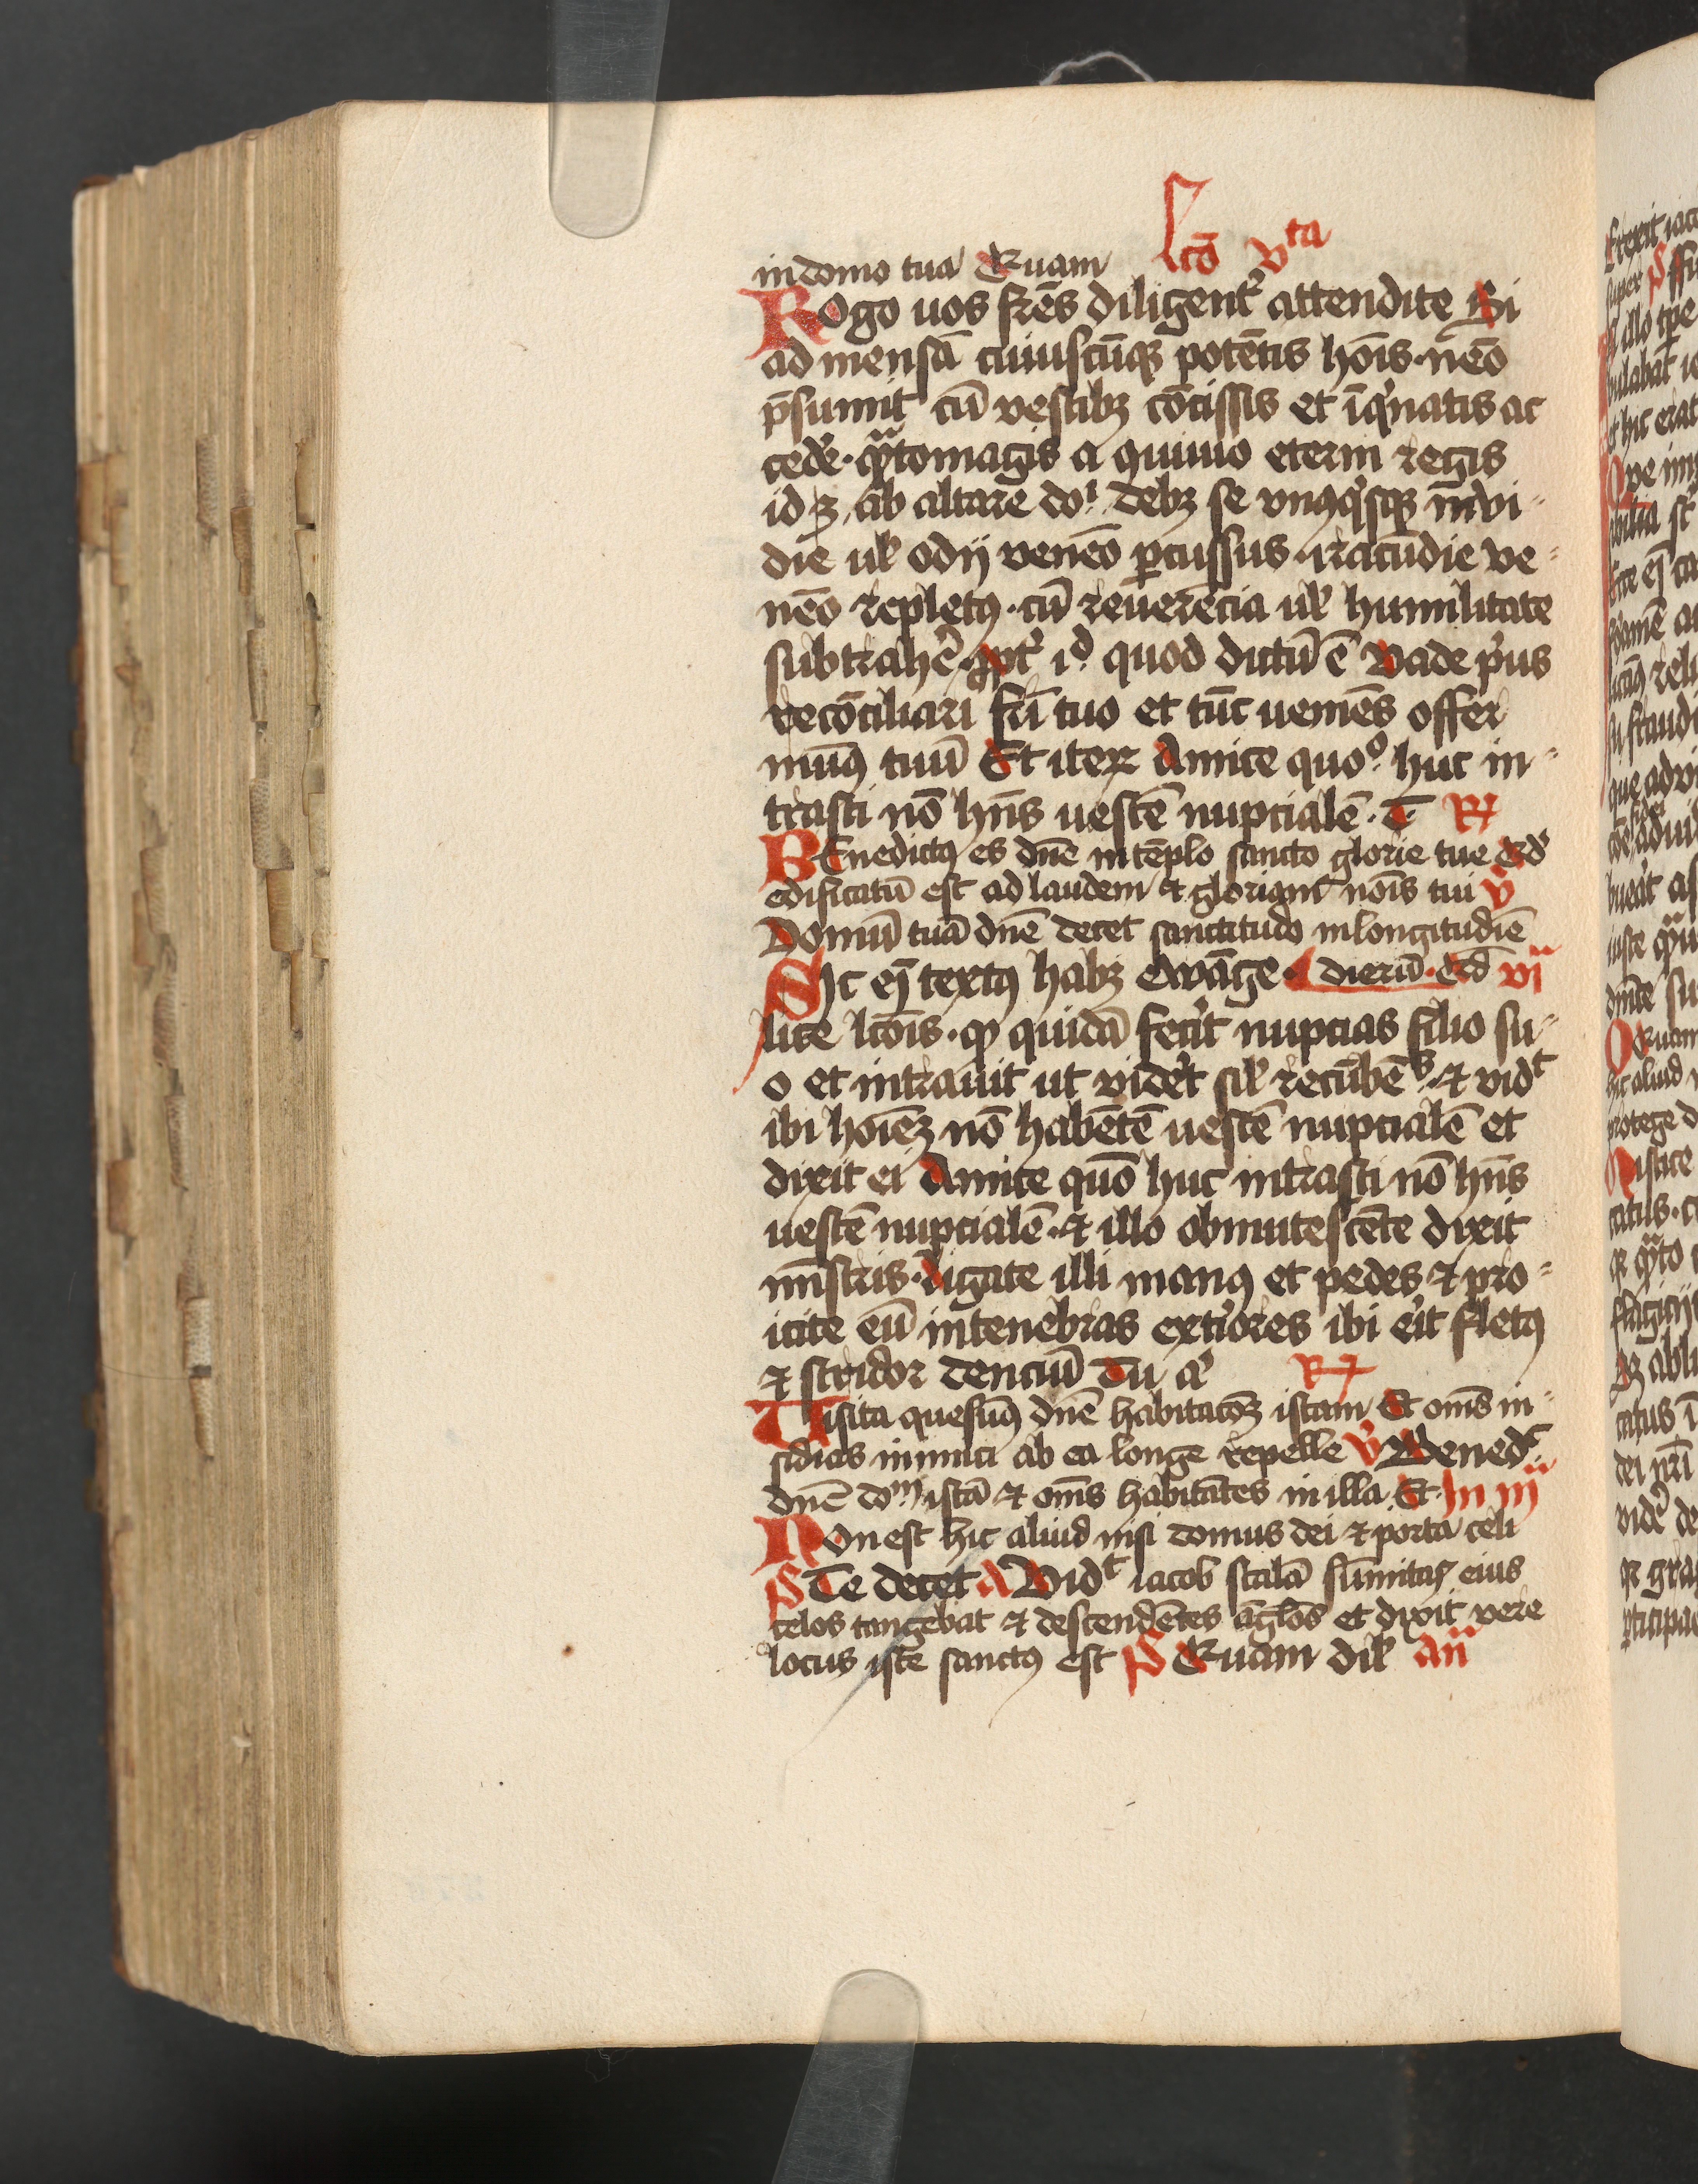 in domo tua Quam lcō vta
Rogo uos frēs diligent᷑ attendite Si
ad mensā cuiuscūqꝫ potētis hoīs · nēo
p̄sumit cū vestibꝫ cōcissis et īq᷑natis ac
cede᷑ · qͣtomagis a quiuio eterni regis
id ꝫ ab altare doⁱ debꝫ se vnꝰq᷑sqꝫ īnvi-
die ul᷑ odij venēo ꝑcussus · iracūdie ve-
nēo repletꝰ · cū reuerēcia ul᷑ humilitate
subtrahe᷑ · ꝓpt᷑ id quod dictū ē Vade p᷑us
recōciliari fr̄i tuo et tūc ueniēs offer
munꝰ tuū Et iteꝝ Amice quoº huc in-
trasti nō hn̄s uestē nupcialē · T R
Benedictꝰ es dn̄e in tēplo sancto glorie tue Qd᷑
edificatū est ad laudem et gloriam noīs tui v
Domū tuā dn̄e decet sanctitudo in longitudiē
Sic eī textꝰ habꝫ ewāge · dierū · Qd vi
lice lcōis · ꝙ quidā fecit nupcias filio su-
o et intrauit ut vide᷑t sil᷑ recūbēs · et vidt
ibi hoīeꝫ nō habētē uestē nupcialē et
dixit ei Amice quō huc intrasti nō hn̄s
uestē nupcialē · et illo obmutescēte dixit
mīstris · Ligate illi manꝰ et pedes et pro-
icite eū in tenebras exti᷑ores ibi e᷑it fletꝰ
et stridor denciū Tu a᷑ R
Visita quesūꝰ dn̄e habitacōꝫ istam Et om̄s in-
sidias inimici ab ea longe repelle v Bened᷑
dn̄e doᵐ istā et om̄s habitātes in illa Et · In iii
Non est hic aliud nisi domus dei et porta celi
Ps Te decet A Vidt iacob scalā sūmitas eius
celos tangebat et descendētes āglos et dixit vere
locus iste sanctꝰ est Ps Quam dil᷑ an